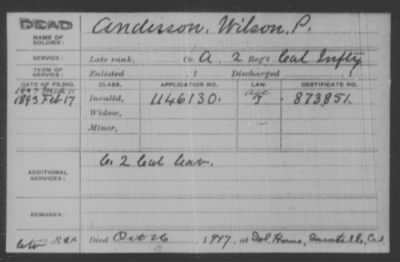 DEAD Anderson, Wilson, P.
NAME OF SOLDIER:
SERVICE: Late rank, Co. A, 2 Reg't Cal Infty
TERM OF SERVICE: Enlisted , 1 Discharged , 1
DATE OF FILING. CLASS. APPLICATION NO. LAW. CERTIFICATE NO.
1893 Feb 17 Invalid, 1146130. Age 873851.
Widow,
Minor,
ADDITIONAL SERVICES: 2 Cal Cav.
REMARKS:
Died Oct 26 1917, at Sol. Home, Cal.